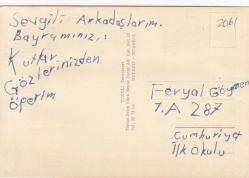 Sevgili Arkadaşlarım.
Bayramınızı:
Kutlar
Gözlerinizden
Öperim
2061
Feryal Göymen
7.A 287
Cumhuriyet
İlk Okulu